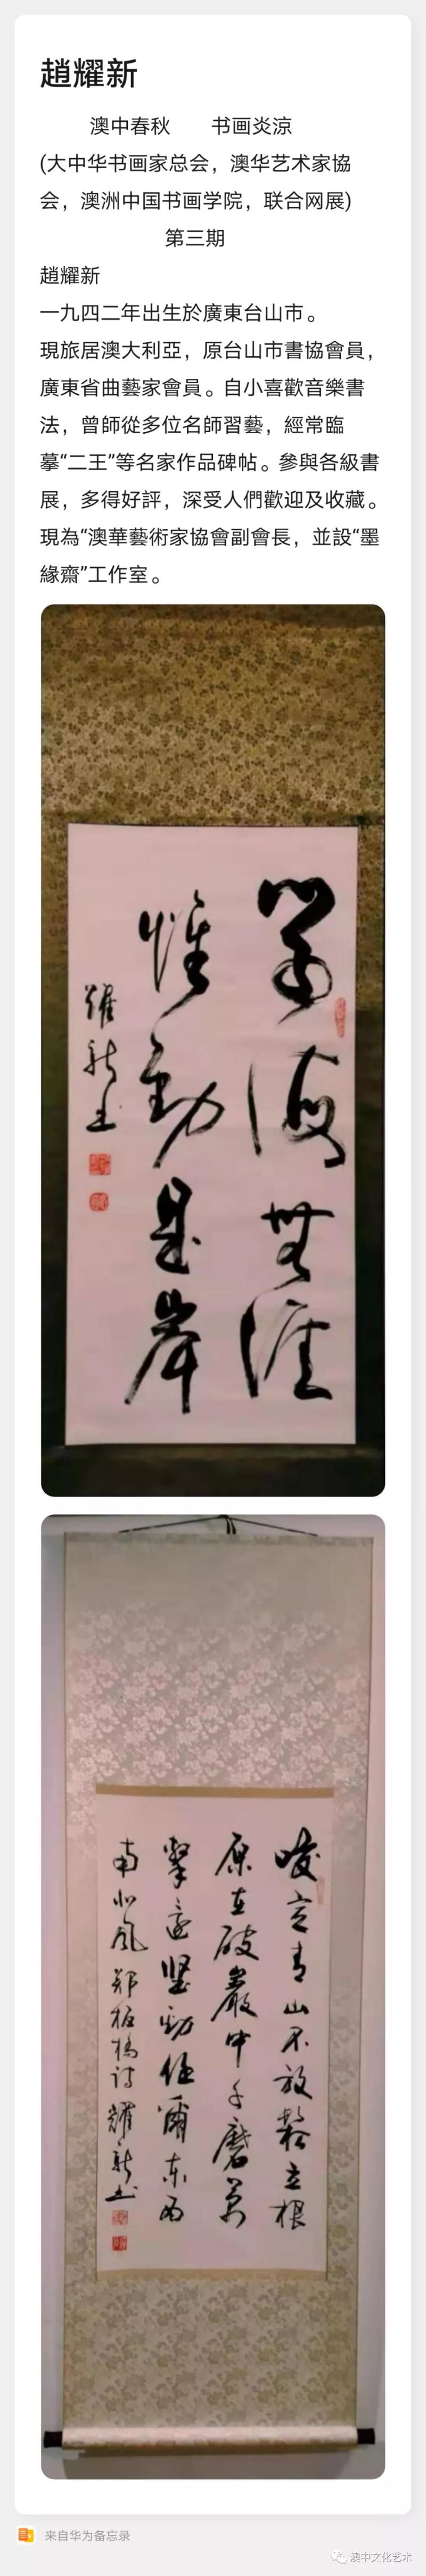 趙耀新
澳中春秋 书画炎涼
(大中华书画家总会，澳华艺术家協
会，澳洲中国书画学院，联合网展)
第三期
趙耀新
一九四二年出生於廣東台山市。
現旅居澳大利亞，原台山市書協會員，
廣東省曲藝家會員。自小喜歡音樂書
法，曾師從多位名師習藝，經常臨
摹“二王”等名家作品碑帖。參與各級書
展，多得好評，深受人們歡迎及收藏。
現為“澳華藝術家協會副會長，並設“墨
緣齋”工作室。
學海無涯
惟勤是岸
耀新书
咬定青山不放鬆立根
原在破巖中千磨萬
擊還堅勁任爾东西
南北风郑板橋诗耀新书
来自华为备忘录
澳中文化艺术